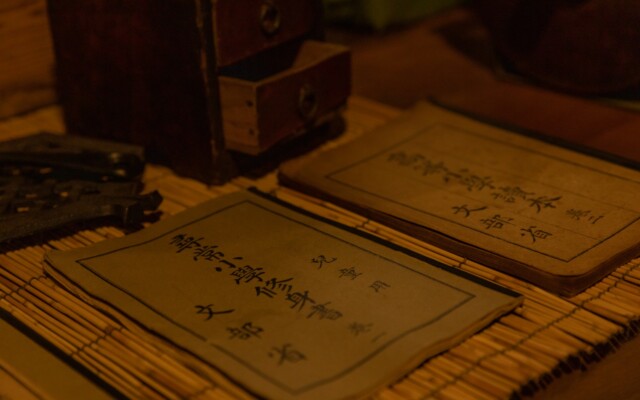 尋常小學修身書
兒童用
卷一
文部省
尋常小學讀本
卷二
文部省